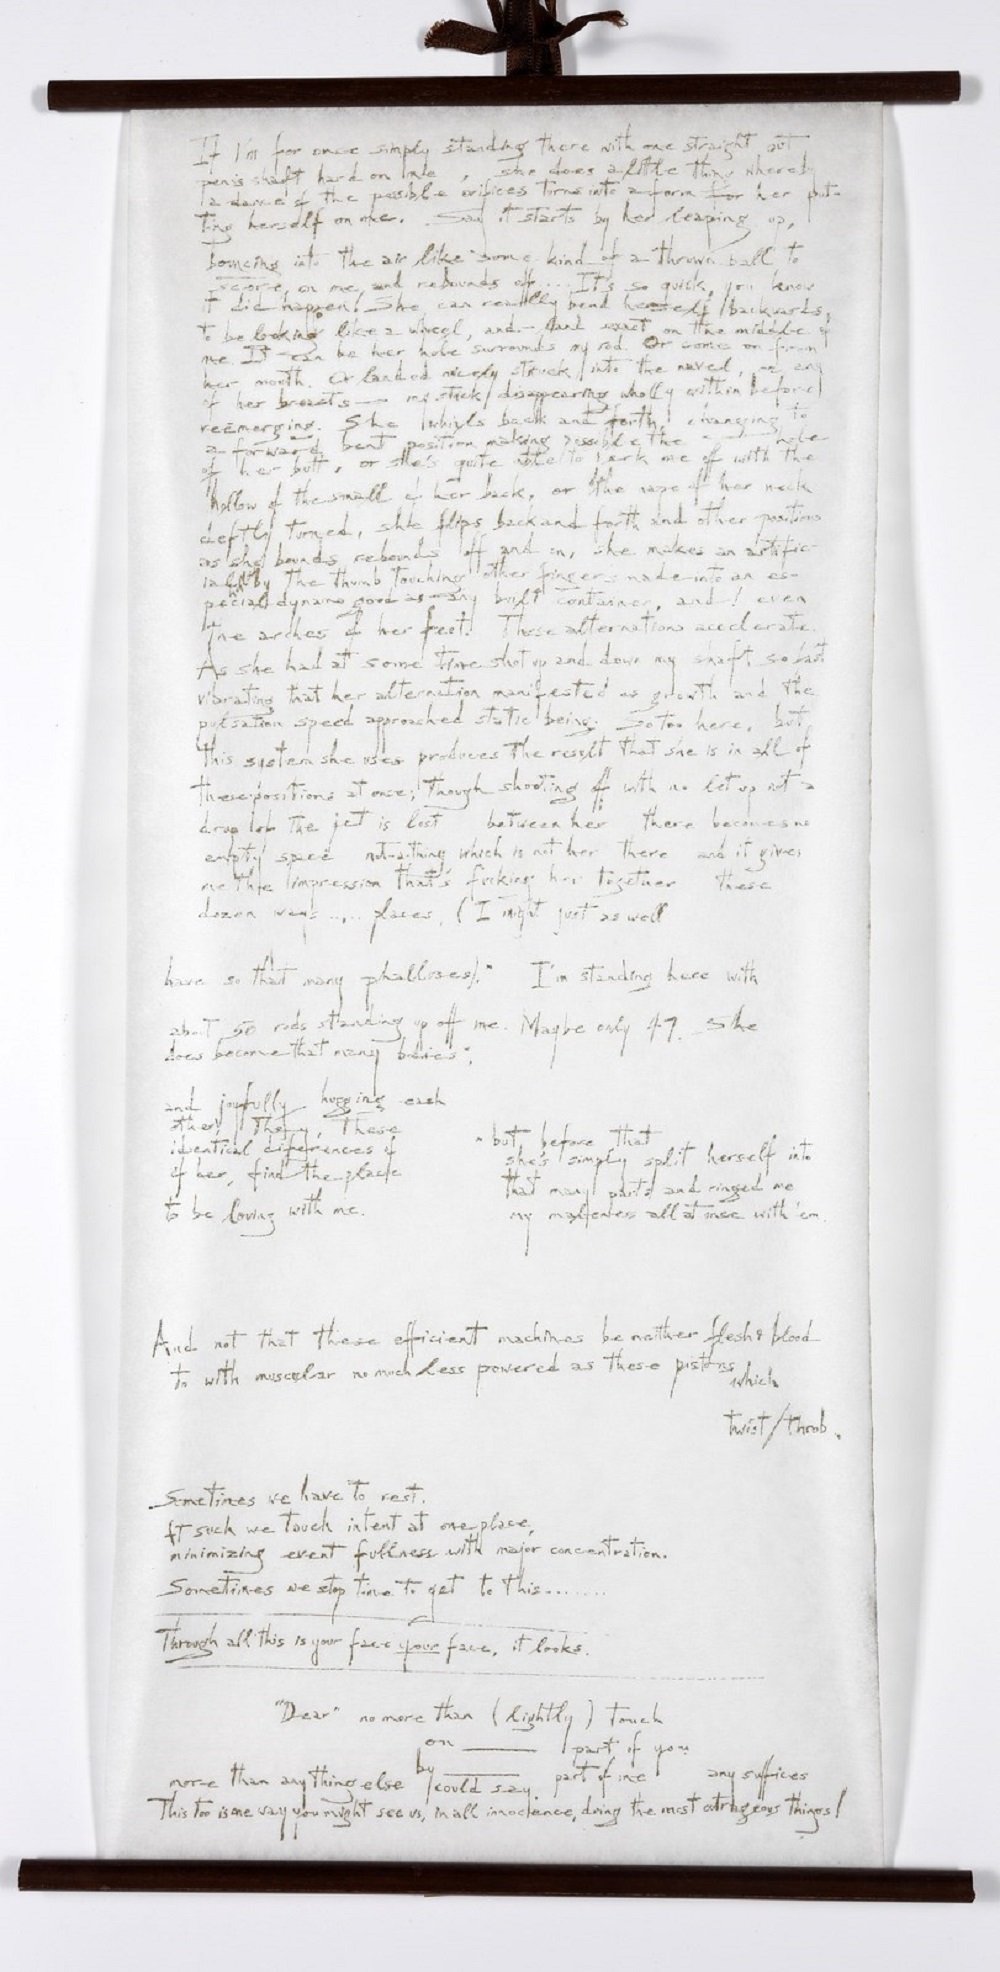 If I'm for once simply standing there with one straight out
penis shaft hard on me , she does a little thing whereby
a dance of the possible orifices turns into a form for her put-
ting herself on me. Say it starts by her leaping up,
bouncing into the air like some kind of a thrown ball to
score, on me, and rebounds off... It's so quick, you know
it did happen! She can really bend herself backwards,
to be looking like a wheel, and land exact on the middle of
me. It can be her hole surrounds my rod. Or comes on from
her mouth. Or landed nicely struck into the navel, or any
of her breasts — my stick disappearing wholly within before
reemerging. She whirls back and forth, changing to
a forward bent position making possible the hole
of her butt, or she's quite able to jerk me off with the
hollow of the small of her back, or the nape of her neck
deftly turned, she flips back and forth and other positions
as she bounds rebounds off and on, she makes an artific-
ial by the thumb touching other fingers made into an es-
pecial dynamo good as any built container, and! even
the arches of her feet! These alternations accelerate.
As she had at some time shot up and down my shaft so fast
vibrating that her alternation manifested as growth and the
pulsation speed approached static being. So too here, but
this system she uses produces the result that she is in all of
these positions at once; though shooting off with no let up not a
drop of the jet is lost between her there becomes no
empty space not-a-thing which is not her there and it gives
me the impression that's fucking her together these
dozen ways .... places, (I might just as well
have so that many phalluses)." I'm standing here with
about 50 rods standing up off me. Maybe only 49. She
does become that many bodies;
and joyfully hugging each
other, They, These
identical diferences of
of her, find the place
to be loving with me.
but, before that
she's simply split herself into
that many parts and ringed me
my all at once with 'em.
And not that these efficient machines be neither flesh & blood
to with muscular no much less powered as these pistons
which
twist/throb.
Sometimes we have to rest.
At such we touch intent at one place,
minimizing event fullness with major concentration.
Sometimes we stop time to get to this.......
Through all this is your face your face, it looks.
"Dear" no more than (lightly) touch
on ____ part of you
by ____ part of me any suffices
more than anything else could say.
This too is one way you might see us, in all innocence, doing the most outrageous things!